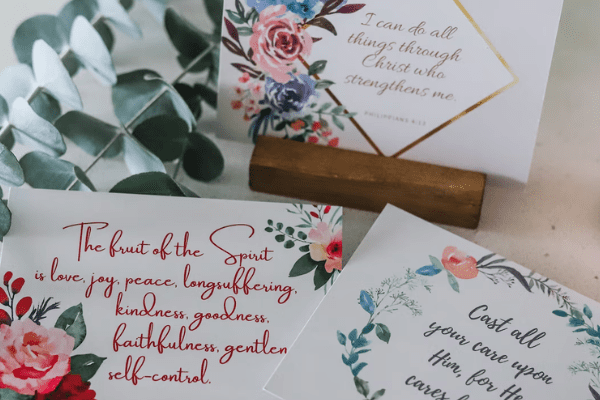 I can do all
things through
Christ who
strengthens me.
PHILIPPIANS 4:13
The fruit of the Spirit
is love, joy, peace, longsuffering,
kindness, goodness,
faithfulness, gentlen
self-control.
Cast all
your care upon
Him, for He
cares